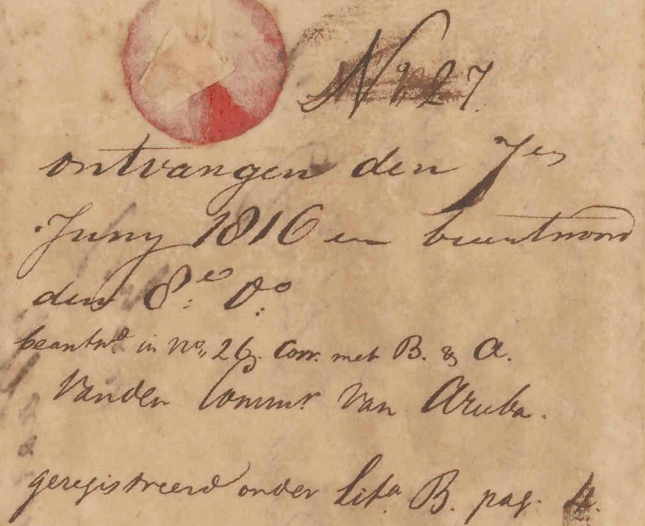 No. 27
ontvangen den 7en
Juny 1816 en beantwoord
den 8:e do
beantwd. in no. 26. Corr. met B. & A.
Vanden Commr. Van Aruba.
geregistreerd onder Lita. B. pag. 4.